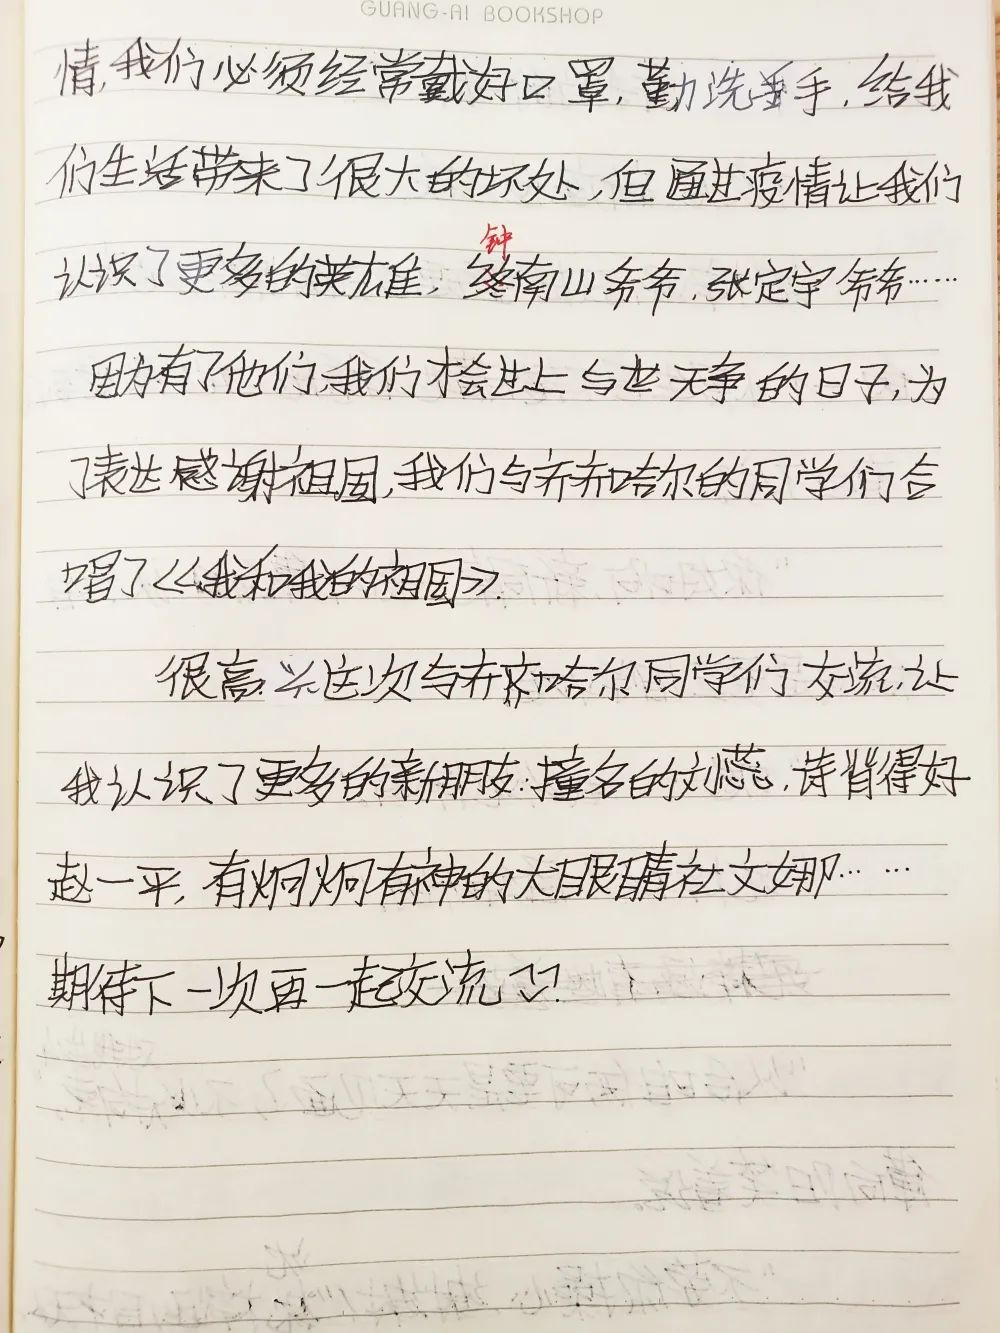 GUANG-AI BOOKSHOP
情,我们必须经常戴好口罩,勤洗手,给我
们生活带来了很大的坏处,但通过疫情让我们
认识了更多的英雄,终南山爷爷,张定宇爷爷……
钟
因为有了他们,我们才会过上与世无争的日子,为
了表达感谢祖国,我们与齐齐哈尔的同学们合
唱了《我和我的祖国》.
很高兴这次与齐齐哈尔同学们交流,让
我认识了更多的新朋友:撞名的刘蕊,诗背得好
赵一平,有炯炯有神的大眼睛社文娜……
期待下一次再一起交流